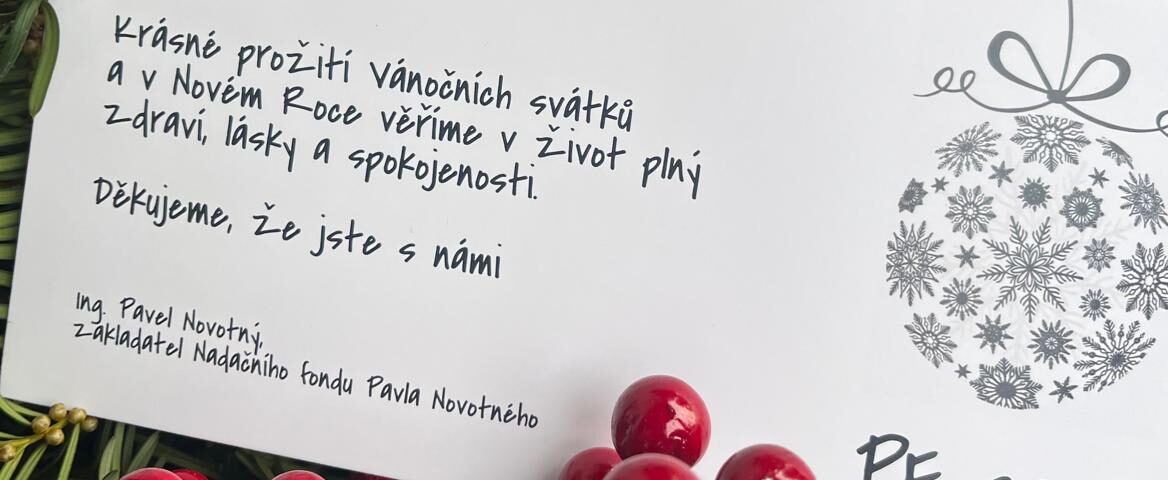 Krásné prožití vánočních svátků
a v Novém Roce věříme v život plný
zdraví, lásky a spokojenosti.
Děkujeme, že jste s námi
Ing. Pavel Novotný,
Zakladatel Nadačního fondu Pavla Novotného